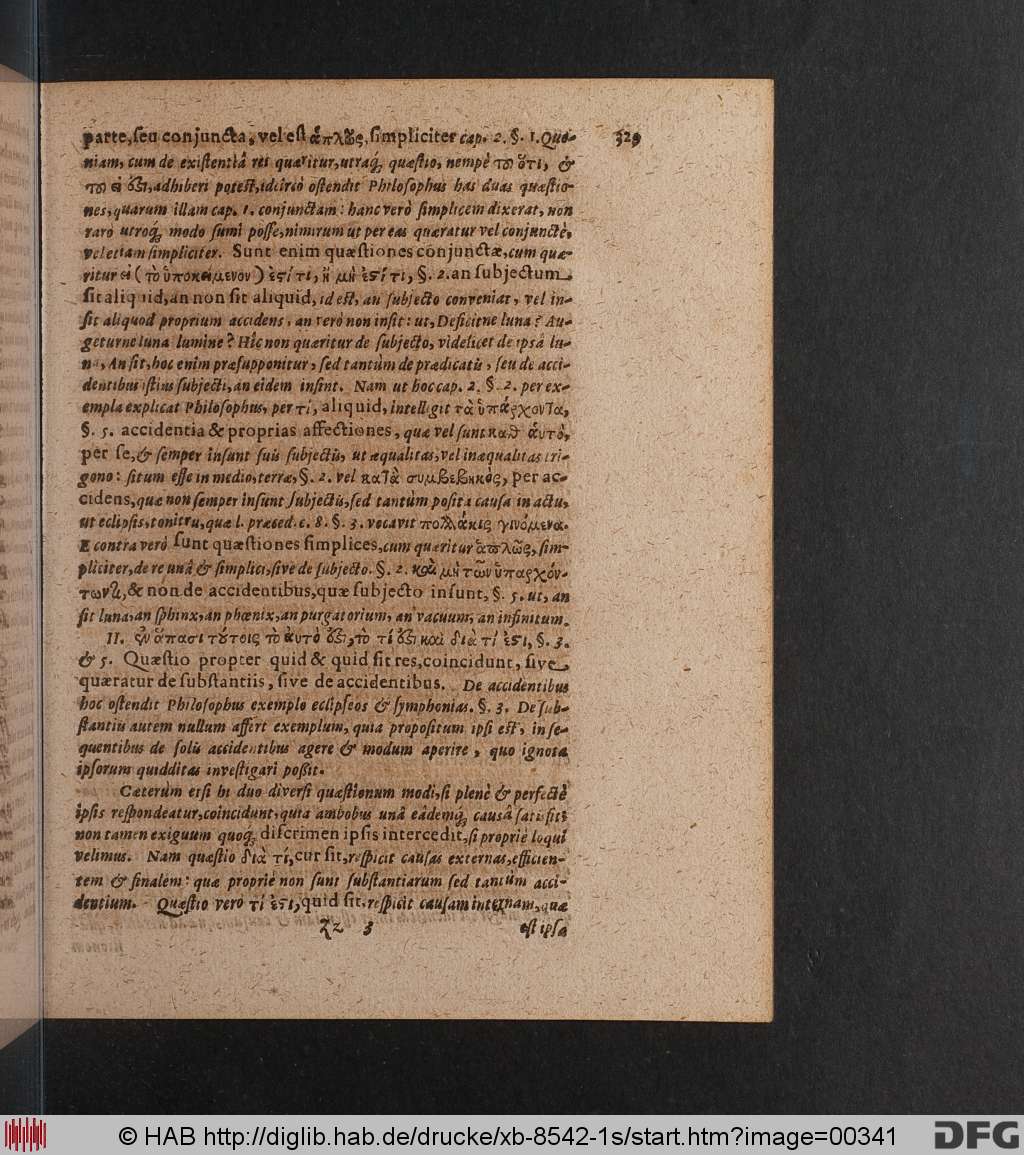 parte, ſeu conjuncta, vel eſt ἁπλῶς, ſimpliciter cap. 2. §. 1. Quo- 329
niam, cum de exiſtentiâ rei quæritur, utraq́; quæſtio, nempè τὸ ὅτι, &
τὸ εἰ ἔϛι, adhiberi poteſt, idcircò oſtendit Philoſophus has duas quæſtio-
nes, quarum illam cap. 1. conjunctam: hanc verò ſimplicem dixerat, non
rarò utroq́; modo ſumi poſſe, nimirum ut per eas quæratur vel conjunctè,
vel etiam ſimpliciter. Sunt enim quæſtiones conjunctæ, cum quæ-
ritur εἰ (τὸ ὑποκείμενον) ἐϛί τι, ἢ μὴ ἐϛί τι, §. 2. an ſubjectum
ſit aliquid, an non ſit aliquid, id eſt, an ſubjecto conveniat, vel in-
ſit aliquod proprium accidens, an verò non inſit: ut, Deficitne luna? Au-
geturne luna lumine? Hîc non quæritur de ſubjecto, videlicet de ipsâ lu-
na, An ſit, hoc enim præſupponitur, ſed tantùm de prædicatis, ſeu de acci-
dentibus iſtius ſubjecti, an eidem inſint. Nam ut hoc cap. 2. §. 2. per ex-
empla explicat Philoſophus, per τί, aliquid, intelligit τὰ ὑπάρχοντα,
§. 5. accidentia & proprias affectiones, quæ vel ſunt καθ᾽ αὑτὸ,
per ſe, & ſemper inſunt ſuis ſubjectis, ut æqualitas, vel inæqualitas tri-
gono: ſitum eſſe in medio, terræ, §. 2. vel κατὰ συμβεβηκὸς, per ac-
cidens, quæ non ſemper inſunt ſubjectis, ſed tantùm poſitâ cauſa in actu,
ut eclipſis, tonitru, quæ l. præced. c. 8. §. 3. vocavit πολλάκις γινόμενα.
E contra verò ſunt quæſtiones ſimplices, cum quæritur ἁπλῶς, ſim-
pliciter, de re unâ & ſimplici, ſive de ſubjecto. §. 2. καὶ μὴ τῶν ὑπαρχόν-
των, & non de accidentibus, quæ ſubjecto inſunt, §. 5. ut, an
ſit luna, an ſphinx, an phœnix, an purgatorium, an vacuum, an infinitum.
II. ἐν ἅπασι τούτοις τὸ αὐτό ἔϛι, τὸ τί ἔϛι καὶ διὰ τί ἐϛι, §. 3.
& 5. Quæſtio propter quid & quid ſit res, coincidunt, ſive
quæratur de ſubſtantiis, ſive de accidentibus. De accidentibus
hoc oſtendit Philoſophus exemplo eclipſeos & ſymphonias. §. 3. De ſub-
ſtantiis autem nullum affert exemplum, quia propoſitum ipſi eſt, in ſe-
quentibus de ſolis accidentibus agere & modum aperire, quo ignota
ipſorum quidditas inveſtigari poßit.
Cæterùm etſi hi duo diverſi quæſtionum modi, ſi plenè & perfectè
ipſis reſpondeatur, coincidunt, quia ambobus unâ eâdemq́; causâ ſatis fit:
non tamen exiguum quoq́; diſcrimen ipſis intercedit, ſi propriè loqui
velimus. Nam quæſtio διὰ τί, cur ſit, reſpicit cauſas externas, efficien-
tem & finalem: quæ propriè non ſunt ſubſtantiarum ſed tantùm acci-
dentium. Quæſtio verò τί ἐϛι, quid ſit, reſpicit cauſam internam, quæ
Zz 3 eſt ipſa
© HAB http://diglib.hab.de/drucke/xb-8542-1s/start.htm?image=00341
DFG